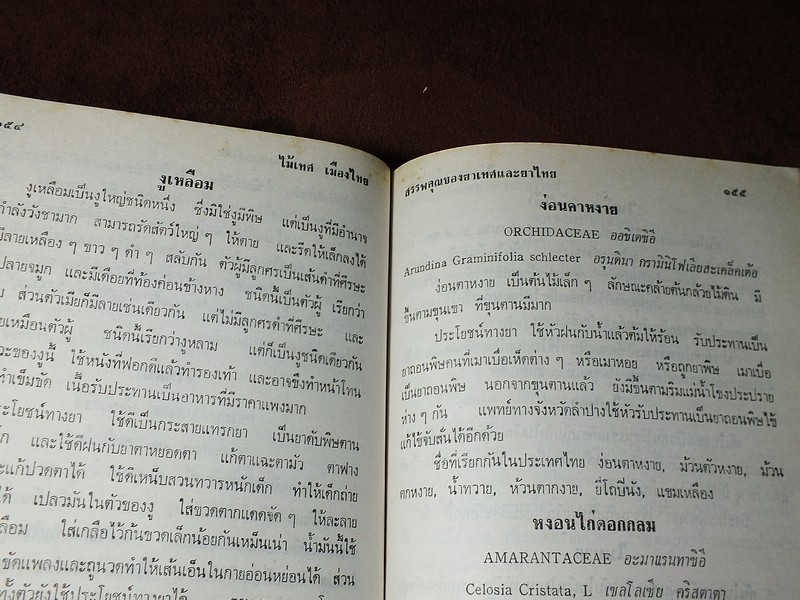 ๑๕๔
ไม้เทศ เมืองไทย
งูเหลือม
งูเหลือมเป็นงูใหญ่ชนิดหนึ่ง ซึ่งมิใช่งูมีพิษ แต่เป็นงูที่มีอำนาจ
กำลังวังชามาก สามารถรัดสัตว์ใหญ่ ๆ ให้ตาย และรีดให้เล็กลงได้
มีลายเหลือง ๆ ขาว ๆ ดำ ๆ สลับกัน ตัวผู้มีลูกศรเป็นเส้นดำที่ศีรษะ
ปลายจมูก และมีเดือยที่ท้องค่อนข้างหาง ชนิดนี้เป็นตัวผู้ เรียกว่า
ส่วนตัวเมียก็มีลายเช่นเดียวกัน แต่ไม่มีลูกศรดำที่ศีรษะ และ
เหมือนตัวผู้ ชนิดนี้เรียกว่างูหลาม แต่ก็เป็นงูชนิดเดียวกัน
ของงูนี้ ใช้หนังที่ฟอกดีแล้วทำรองเท้า และอาจขึงทำหน้าโทน
ทำเข็มขัด เนื้อรับประทานเป็นอาหารที่มีราคาแพงมาก
ประโยชน์ทางยา ใช้ดีเป็นกระสายแทรกยา เป็นยาดับพิษตาน
และใช้ดีฝนกับยาตาหยอดตา แก้ตาแฉะตามัว ตาฟาง
และแก้ปวดตาได้ ใช้ดีเหน็บสวนทวารหนักเด็ก ทำให้เด็กถ่าย
ได้ เปลวมันในตัวของงู ใส่ขวดตากแดดจัด ๆ ให้ละลาย
ใส่เกลือไว้ก้นขวดเล็กน้อยกันเหม็นเน่า น้ำมันนี้ใช้
ขัดแพลงและถูนวดทำให้เส้นเอ็นในกายอ่อนหย่อนได้ ส่วน
ทั้งตัวยังใช้ประโยชน์ทางยาได้
สรรพคุณของยาเทศและยาไทย
๑๕๕
ง่อนตาหงาย
ORCHIDACEAE ออชิเดซิอี
Arundina Graminifolia schlecter อรุนดินา กรามินิโฟเลียสะเคล็คเต้อ
ง่อนตาหงาย เป็นต้นไม้เล็ก ๆ ลักษณะคล้ายต้นกล้วยไม้ดิน มี
ขึ้นตามขุนเขา ที่ขุนตานมีมาก
ประโยชน์ทางยา ใช้หัวฝนกับน้ำแล้วต้มให้ร้อน รับประทานเป็น
ยาถอนพิษคนที่เมาเบื่อเห็ดต่าง ๆ หรือเมาหอย หรือถูกยาพิษ เมาเบื่อ
เป็นยาถอนพิษ นอกจากขุนตานแล้ว ยังมีขึ้นตามริมแม่น้ำโขงประปราย
ห่าง ๆ กัน แพทย์ทางจังหวัดลำปางใช้หัวรับประทานเป็นยาถอนพิษไข้
แก้ไข้จับสั่นได้อีกด้วย
ชื่อที่เรียกกันในประเทศไทย ง่อนตาหงาย, ม้วนตัวหงาย, ม้วน
ตกหงาย, น้ำทวาย, ห้วนตากงาย, ยี่โถปี่นัง, แขมเหลือง
หงอนไก่ดอกกลม
AMARANTACEAE อะมาแรนทาซิอี
Celosia Cristata, L เซลโลเซีย คริสตาตา